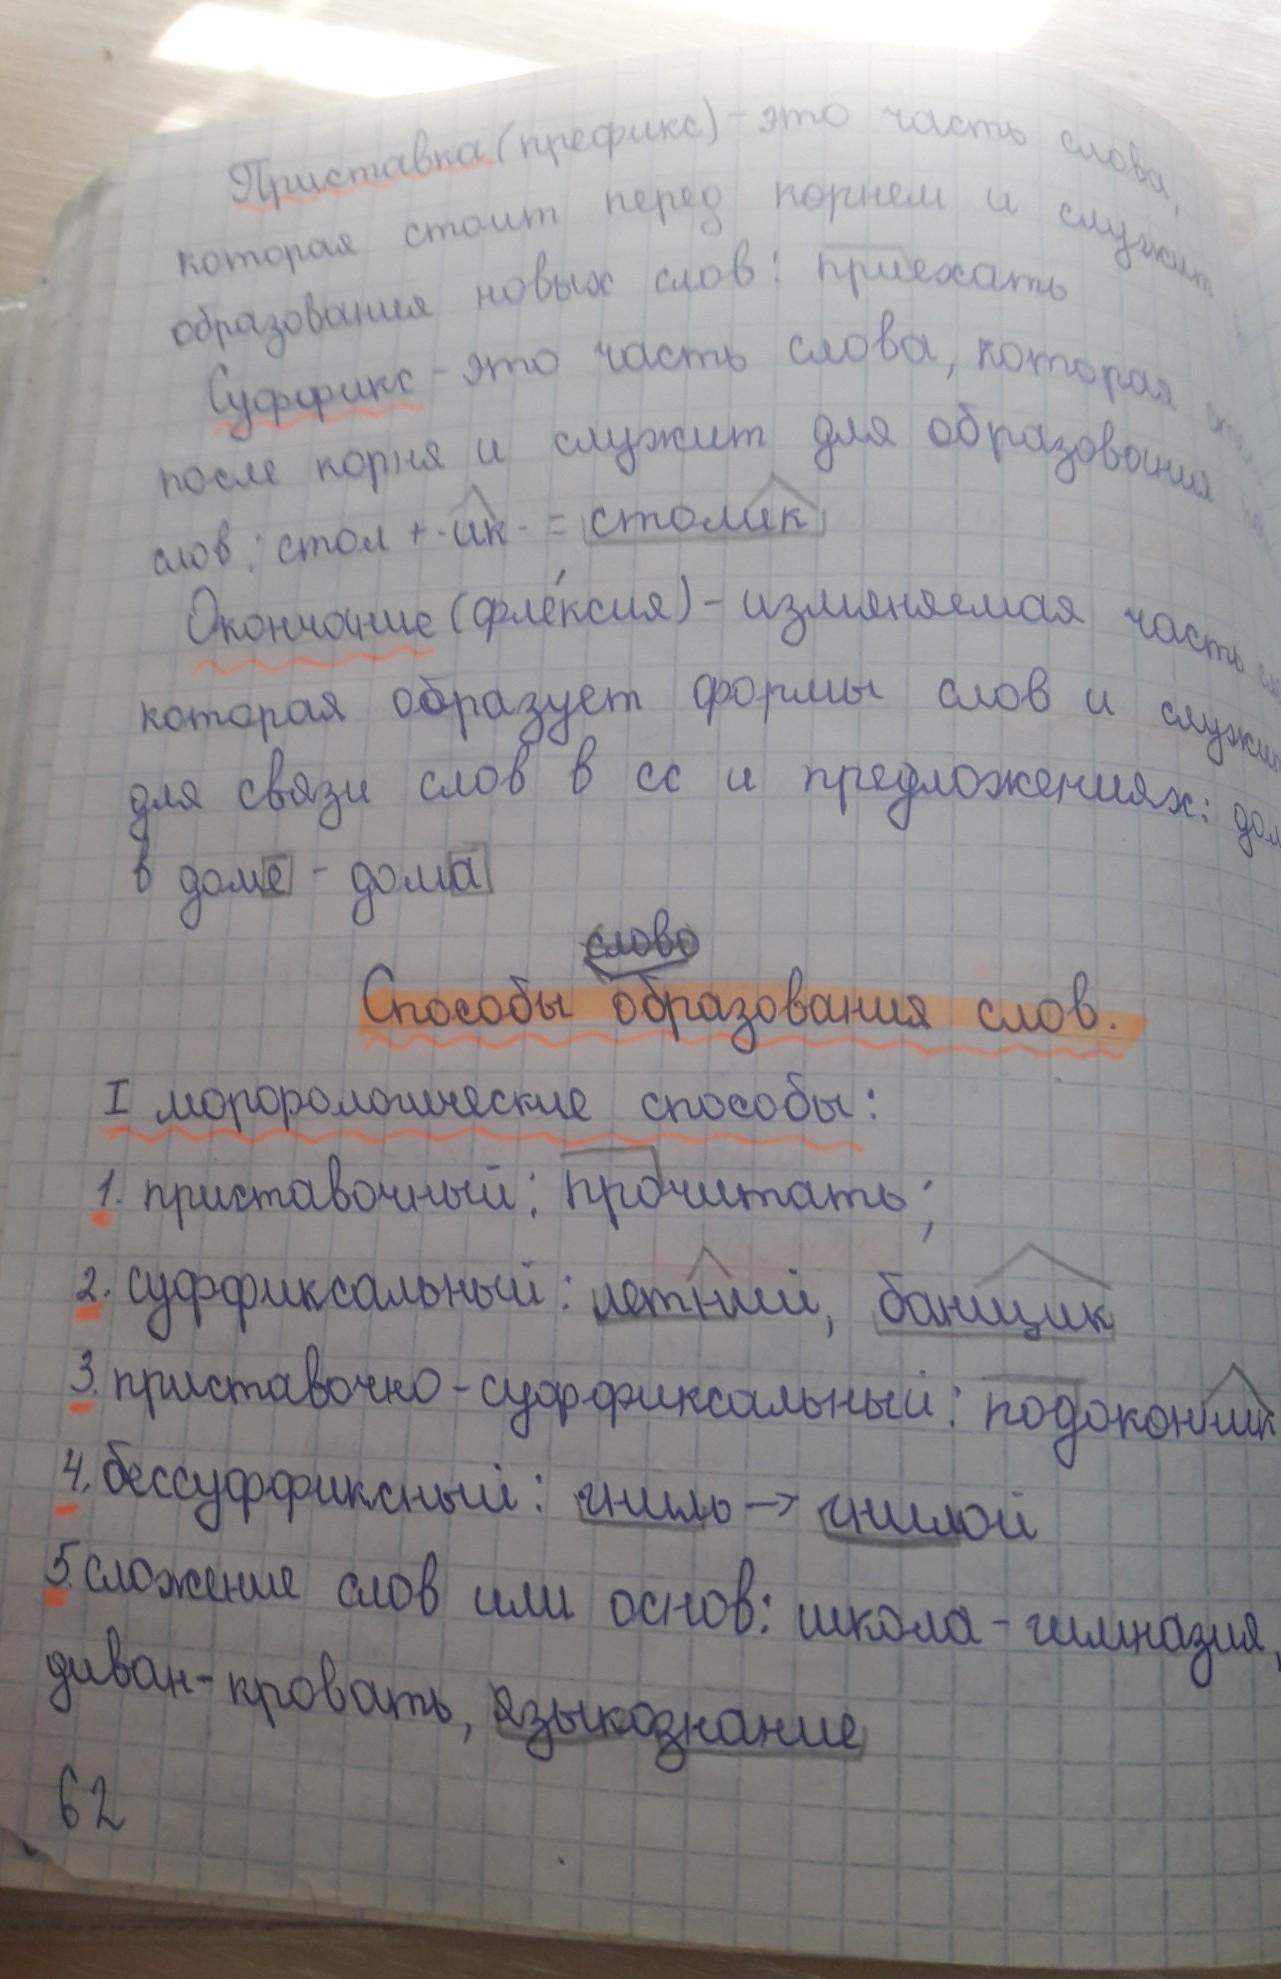 Приставка (префикс) - это часть слова,
которая стоит перед корнем и служит
образования новых слов: приехать
Суффикс - это часть слова, которая
после корня и служит для образования
слов: стол + -ик- = столик
Окончание (флексия) - изменяемая часть
которая образует формы слов и служит
для связи слов в сс и предложениях: дом
в доме - дома
слово
Способы образования слов.
I морфологические способы:
1. приставочный: прочитать;
2. суффиксальный: летний, банщик
3. приставочно-суффиксальный: подоконник
4. бессуффиксный: гниль → гнилой
5. сложение слов или основ: школа - гимназия,
диван-кровать, языкознание
62